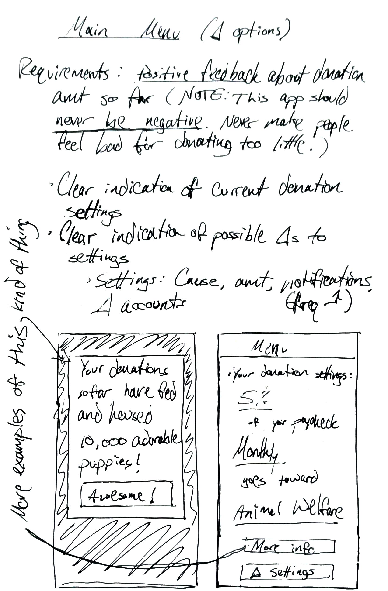 Main Menu (Δ options)
Requirements: positive feedback about donation
amt so far (NOTE: This app should
never be negative. Never make people
feel bad for donating too little.)
· Clear indication of current donation
settings
· Clear indication of possible Δs to
settings
· Settings: Cause, amt, notifications,
Δ accounts (freq
More examples of this kind of thing
Your donations
so far have fed
and housed
10,000 adorable
puppies!
Awesome!
Menu
· Your donation settings:
of your paycheck
Monthly
goes toward
Animal Welfare
More info
Δ settings